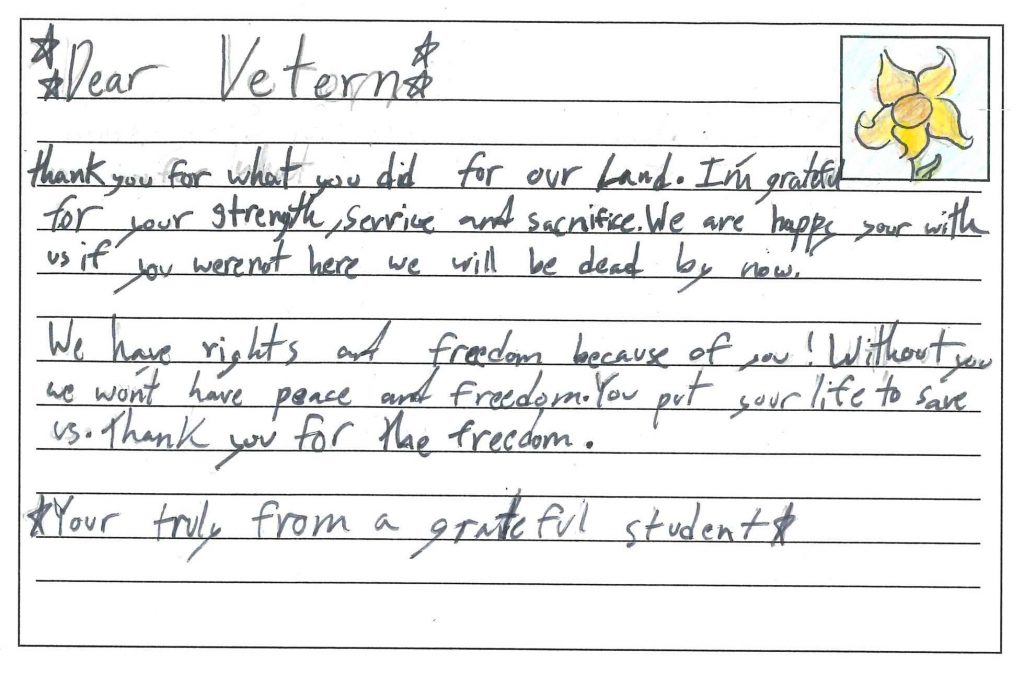 Dear Vetern
thank you for what you did for our Land. I'm grateful
for your strength, service and sacrifice. We are happy your with
us if you were not here we will be dead by now.
We have rights and freedom because of you! Without you
we won't have peace and freedom. You put your life to save
us. Thank you for the freedom.
Your truly from a grateful student